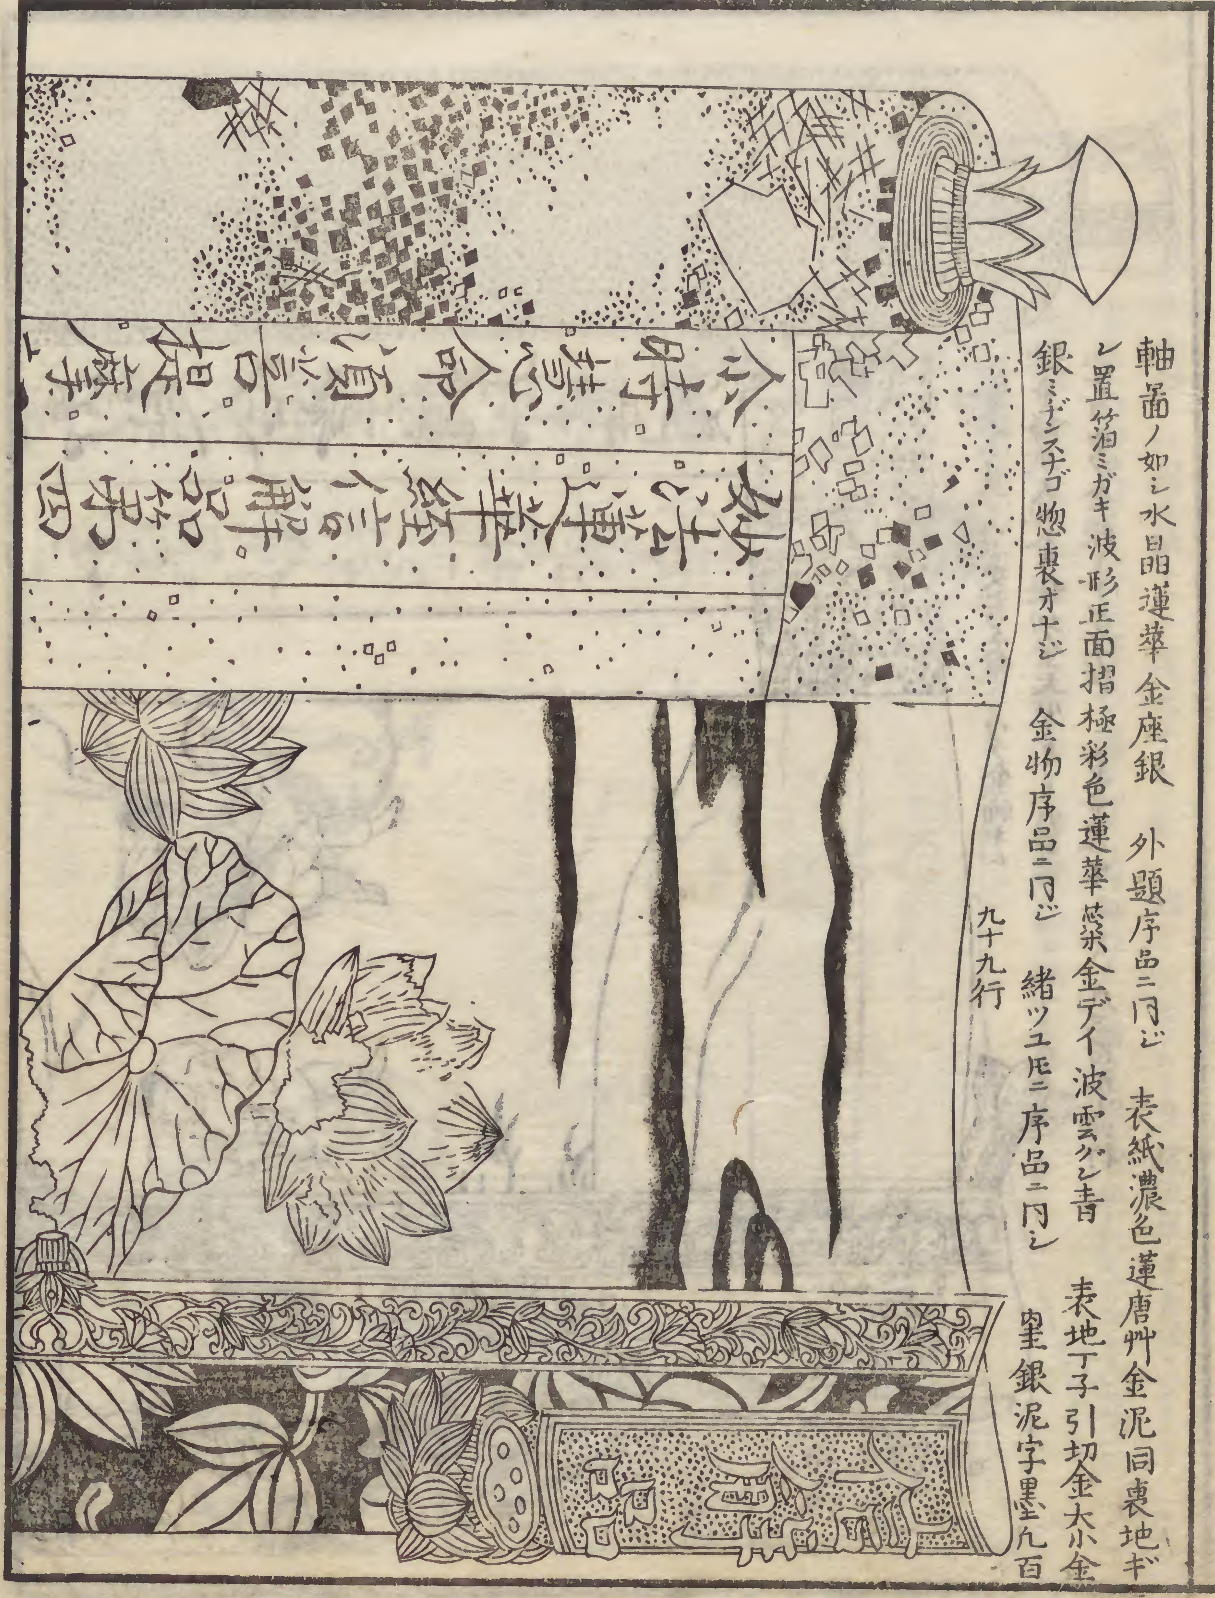 軸啚ノ如シ水晶蓮華金座銀　外題序品ニ同ジ　表紙濃色蓮唐艸金泥同裏地ギ
ン置箔ミガキ波形正面摺極彩色蓮華葉金デイ波雲グン青　表地丁子引切金大小金
銀ミヂンスナゴ惣裏オナジ　金物序品ニ同ジ　緒ツユ圧ニ序品ニ同シ　罫銀泥字墨九百
九十九行
妙法蓮華経信解品第四
尒時慧命須菩提摩
信解品